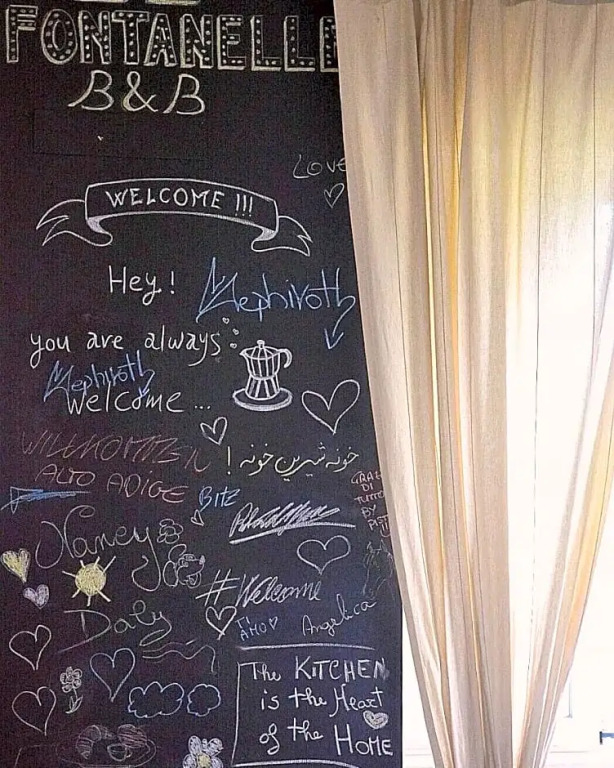 FONTANELLE
B&B
LOVE
WELCOME !!!
Hey!
Mephiroth
you are always
Mephiroth
welcome ...
WILLKOMMEN
خونه شیرین خونه !
ALTO ADIGE
BITZ
GRAZ
DI
TUTTO
BY
Nancy
#Welcome
Daly
TI
AMO
Angelica
The KITCHEN
is the Heart
of the HOME